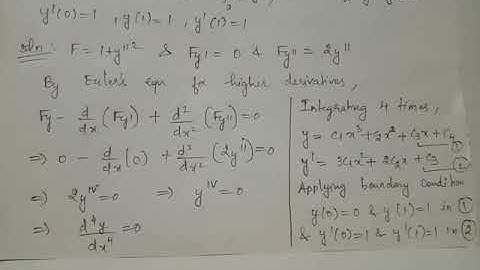 y'(0)=1 , y(1)=1 , y'(1)=1
Soln: F = 1+y''² & Fy' = 0 & Fy'' = 2y''
By Euler's eqn for higher derivatives,
Fy - d/dx (Fy') + d²/dx² (Fy'') = 0
⇒ 0 - d/dx (0) + d²/dx² (2y'') = 0
⇒ 2y^IV = 0 ⇒ y^IV = 0
⇒ d⁴y/dx⁴ = 0
Integrating 4 times,
y = C₁x³ + C₂x² + C₃x + C₄ ①
y' = 3C₁x² + 2C₂x + C₃ ②
Applying boundary condition
y(0)=0 & y(1)=1 in ①
& y'(0)=1 & y'(1)=1 in ②